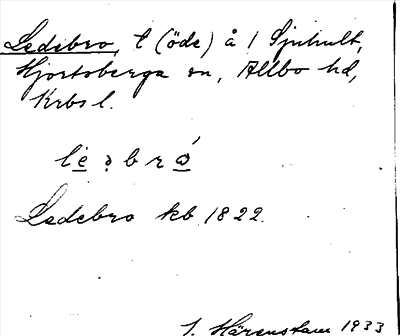 Ledebro, t (öde) å 1 Sjöhult,
Hjortsberga sn, Allbo hd,
Krbs l.
le̱ ə b r ó̱
Ledebro kb 1822.
J. Härenstam 1933